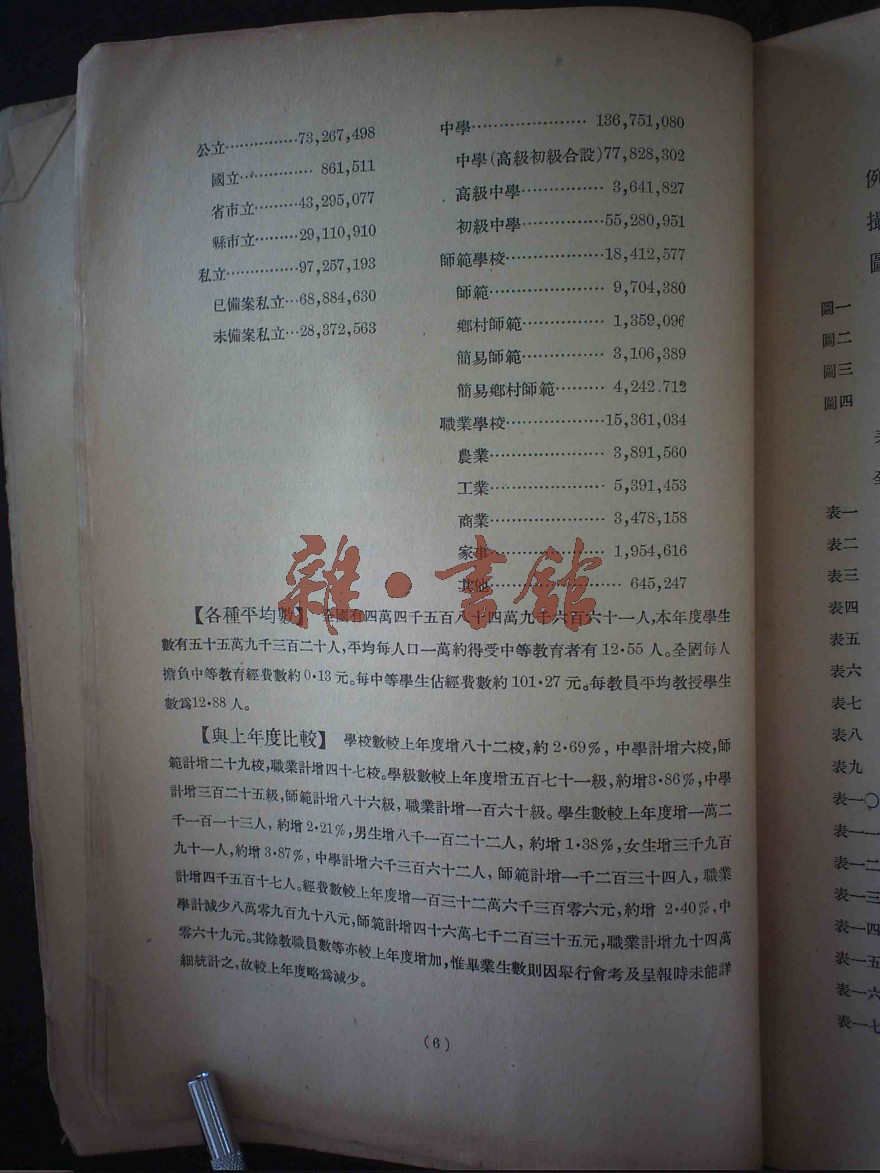 公立……………73,267,498
國立…………… 861,511
省市立………43,295,077
縣市立………29,110,910
私立……………97,257,193
已備案私立…68,884,630
未備案私立…28,372,563
中學…………………… 136,751,080
中學(高級初級合設)77,828,302
高級中學…………… 3,641,827
初級中學……………55,280,951
師範學校………………18,412,577
師範…………………… 9,704,380
鄉村師範…………… 1,359,096
簡易師範…………… 3,106,389
簡易鄉村師範……… 4,242.712
職業學校………………15,361,034
農業…………………… 3,891,560
工業…………………… 5,391,453
商業…………………… 3,478,158
家事…………………… 1,954,616
其他……………………… 645,247
【各種平均數】 全國有四萬四千五百八十四萬九千六百六十一人,本年度學生
數有五十五萬九千三百二十人,平均每人口一萬約得受中等教育者有 12·55 人。全國每人
擔負中等教育經費數約0·13 元。每中等學生佔經費數約 101·27 元。每教員平均教授學生
數爲12·88 人。
【與上年度比較】 學校數較上年度增八十二校,約 2·69%, 中學計增六校,師
範計增二十九校,職業計增四十七校。學級數較上年度增五百七十一級,約增3·86%,中學
計增三百二十五級,師範計增八十六級, 職業計增一百六十級。學生數較上年度增一萬二
千一百一十三人, 約增 2·21%,男生增八千一百二十二人, 約增 1·38%,女生增三千九百
九十一人,約增 3·87%, 中學計增六千三百六十二人, 師範計增一千二百三十四人, 職業
計增四千五百十七人。經費數較上年度增一百三十二萬六千三百零六元,約增 2·40%,中
學計減少八萬零九百九十八元,師範計增四十六萬七千二百三十五元,職業計增九十四萬
零六十九元。其餘教職員數等亦較上年度增加,惟畢業生數則因舉行會考及呈報時未能詳
細統計之,故較上年度略爲減少。
(6)
雜·書館
例
圖一
圖二
圖三
圖四
表一
表二
表三
表四
表五
表六
表七
表八
表九
表一〇
表一一
表一二
表一三
表一四
表一五
表一六
表一七